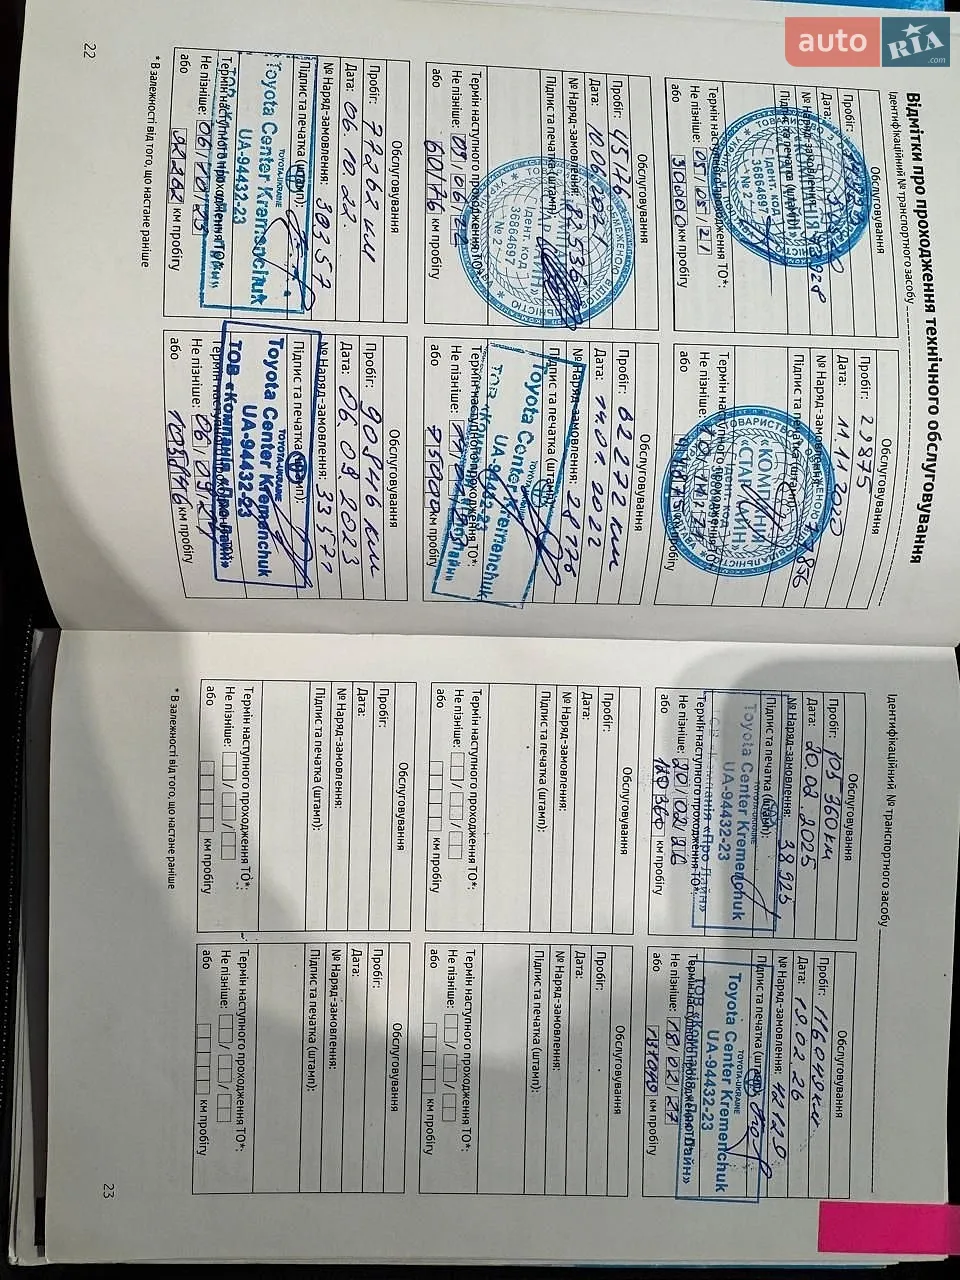 auto RIA.com
Відмітки про проходження технічного обслуговування
Ідентифікаційний № транспортного засобу
Обслуговування
Пробіг:
Дата:
№ Наряд-замовлення:
Підпис та печатка (штамп):
Термін наступного проходження ТО*:
Не пізніше: 01/05/21
або 30000 км пробігу
Обслуговування
Пробіг: 29875
Дата: 11.11.2020
№ Наряд-замовлення:
Підпис та печатка (штамп):
«КОМПАНІЯ
«СТАР ЛАЙН»
Ідент. код
Термін наступного проходження ТО*:
Не пізніше:
або км пробігу
Обслуговування
Пробіг: 45176
Дата: 10.06.2021
№ Наряд-замовлення:
Підпис та печатка (штамп):
Ідент. код
36864697
№ 2
Термін наступного проходження ТО*:
Не пізніше:
або 60176 км пробігу
Обслуговування
Пробіг: 62272 км
Дата: 14.01.2022
№ Наряд-замовлення: 28776
Підпис та печатка (штамп):
Toyota Center Kremenchuk
UA-94432-23
Термін наступного проходження ТО*:
Не пізніше:
або км пробігу
Обслуговування
Пробіг: 77262 км
Дата: 06.10.22.
№ Наряд-замовлення: 30357
Підпис та печатка (штамп):
TOYOTA-UKRAINE
Toyota Center Kremenchuk
UA-94432-23
Термін наступного проходження ТО*:
Не пізніше: 06/10/23
або 92262 км пробігу
Обслуговування
Пробіг: 90546 км
Дата: 06.09.2023
№ Наряд-замовлення: 33577
Підпис та печатка (штамп):
TOYOTA-UKRAINE
Toyota Center Kremenchuk
UA-94432-23
ТОВ «Компанія «Про Лайн»
Термін наступного проходження ТО*:
Не пізніше: 06/09/24
або 105546 км пробігу
* В залежності від того, що настане раніше
22
Ідентифікаційний № транспортного засобу
Обслуговування
Пробіг: 105 360 км
Дата: 20.02.2025
№ Наряд-замовлення: 38925
Підпис та печатка (штамп):
TOYOTA-UKRAINE
Toyota Center Kremenchuk
UA-94432-23
ТОВ «Компанія «Про Лайн»
Термін наступного проходження ТО*:
Не пізніше: 20/02/26
або 120360 км пробігу
Обслуговування
Пробіг: 116049 км
Дата: 19.02.26
№ Наряд-замовлення: 42120
Підпис та печатка (штамп):
TOYOTA-UKRAINE
Toyota Center Kremenchuk
UA-94432-23
ТОВ «Компанія «Про Лайн»
Термін наступного проходження ТО*:
Не пізніше: 18/02/27
або км пробігу
Обслуговування
Пробіг:
Дата:
№ Наряд-замовлення:
Підпис та печатка (штамп):
Термін наступного проходження ТО*:
Не пізніше:
або км пробігу
Обслуговування
Пробіг:
Дата:
№ Наряд-замовлення:
Підпис та печатка (штамп):
Термін наступного проходження ТО*:
Не пізніше:
або км пробігу
Обслуговування
Пробіг:
Дата:
№ Наряд-замовлення:
Підпис та печатка (штамп):
Термін наступного проходження ТО*:
Не пізніше:
або км пробігу
Обслуговування
Пробіг:
Дата:
№ Наряд-замовлення:
Підпис та печатка (штамп):
Термін наступного проходження ТО*:
Не пізніше:
або км пробігу
* В залежності від того, що настане раніше
23